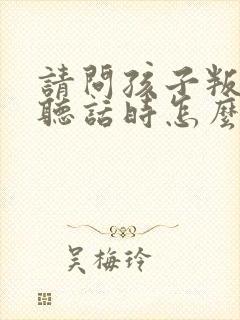 請問孩子叛
聽話時怎麼
吳梅玲